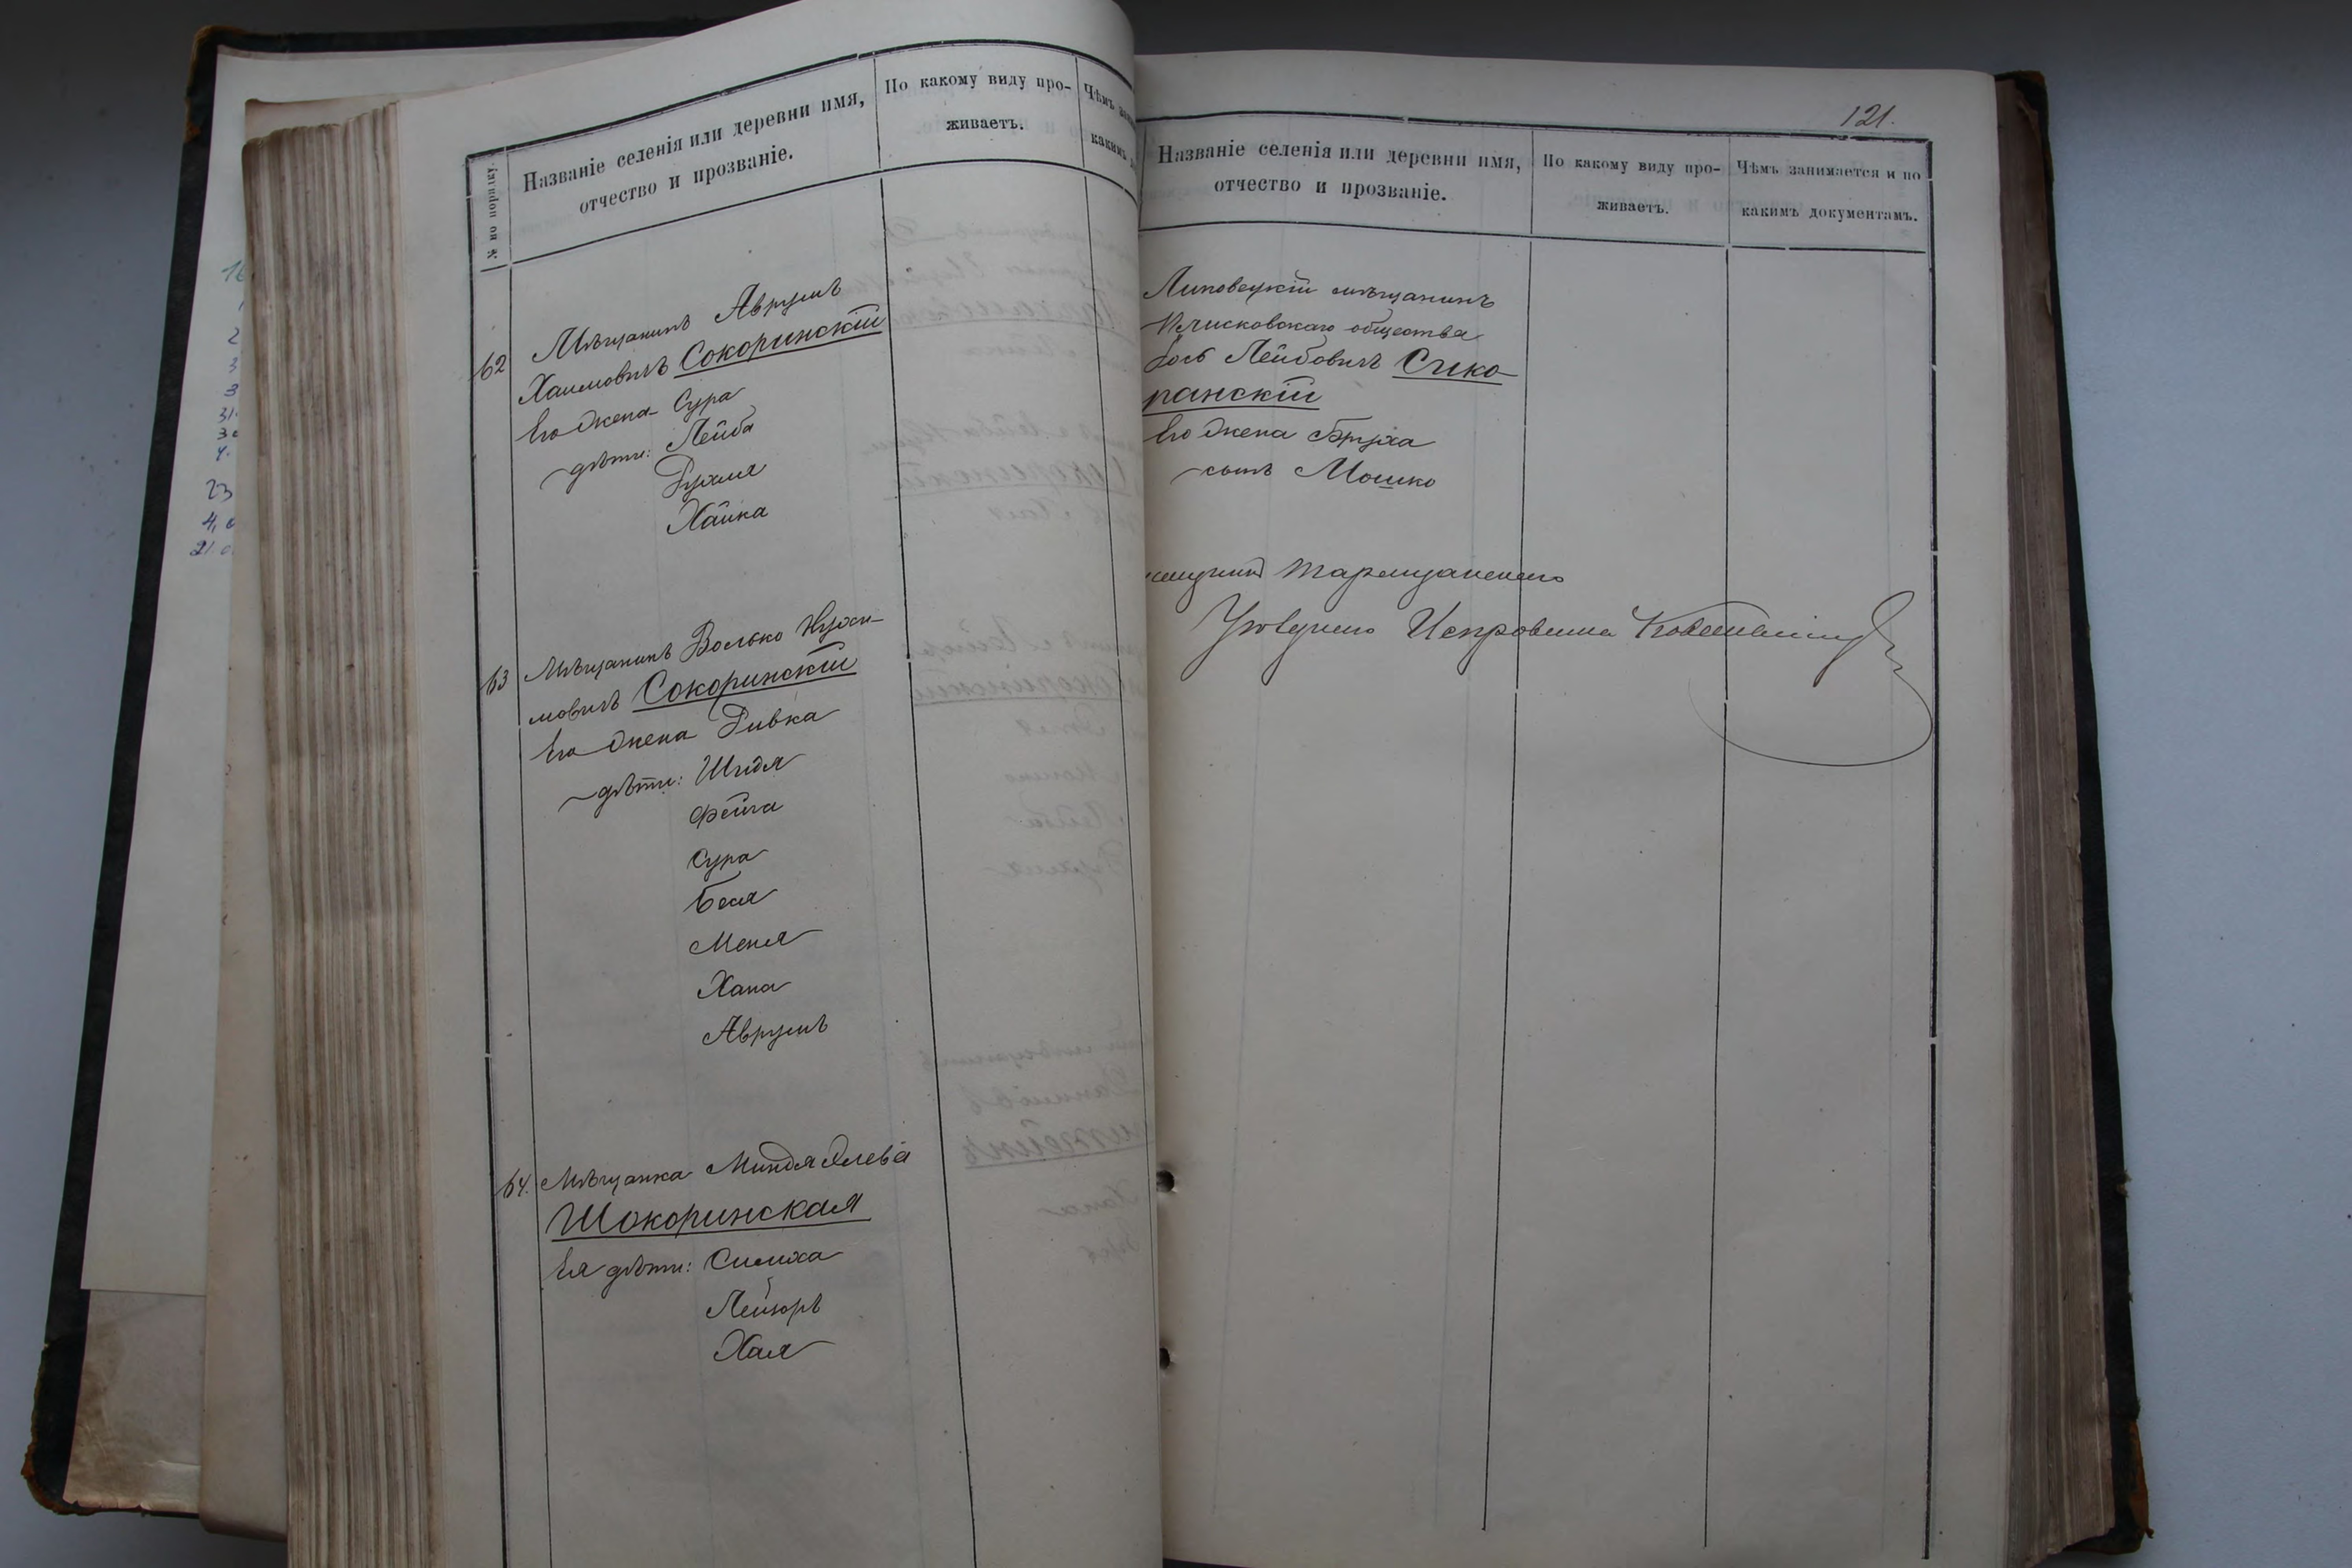 № по порядку
Названіе селенія или деревни имя,
отчество и прозваніе.
По какому виду про-
живаетъ.
Чѣмъ
какимъ
62 Мѣщанинъ Аврумъ
Хаимовичъ Сокоринскій
Его жена Сура
дѣти: Лейба
Рухля
Хайка
63 Мѣщанинъ Волько Нухи-
мовичъ Сокоринскій
Его жена Ривка
дѣти: Шидя
Фейга
Сура
Бася
Меня
Хана
Аврумъ
64. Мѣщанка Миндля
Шокоринская
Ея дѣти: Симха
Лейзоръ
Хая
121.
Названіе селенія или деревни имя,
отчество и прозваніе.
По какому виду про-
живаетъ.
Чѣмъ занимается и по
какимъ документамъ.
Липовецкій мѣщанинъ
общества
Лейбовичъ Сико-
ранскій
Его жена Бруха
сынъ Мошко
Таращанскаго
Уѣзднаго Исправника